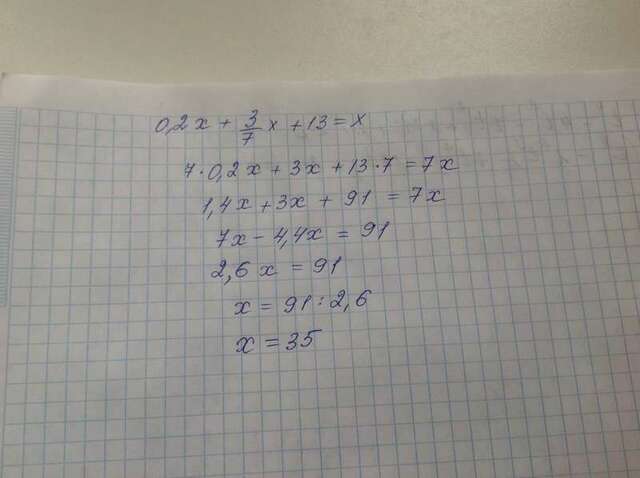 0,2x + 3/7 x + 13 = x
7·0,2x + 3x + 13·7 = 7x
1,4x + 3x + 91 = 7x
7x - 4,4x = 91
2,6x = 91
x = 91:2,6
x = 35